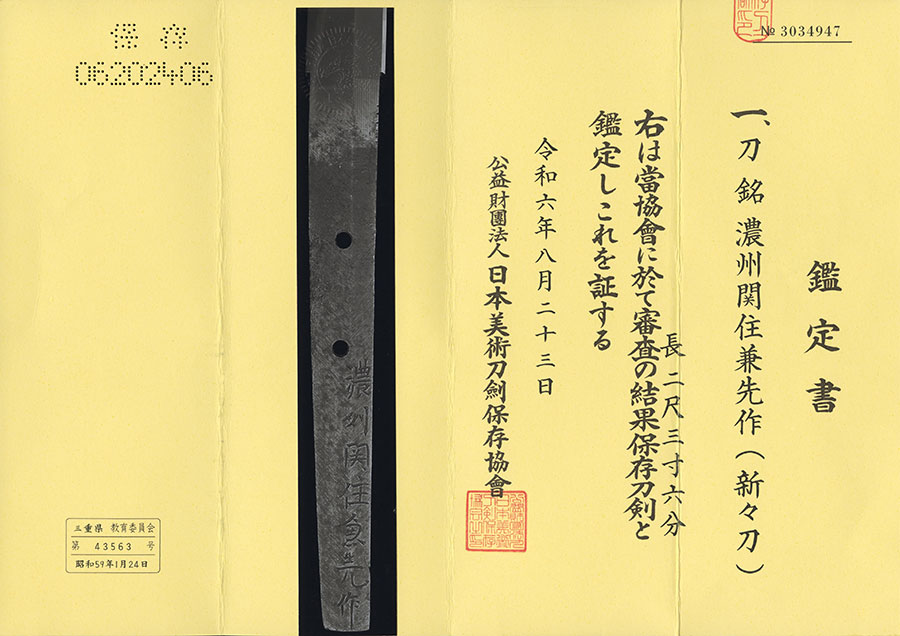 № 3034947
鑑定書
一、刀 銘 濃州関住兼先作(新々刀)
長二尺三寸六分
右は當協會に於て審査の結果保存刀剣と
鑑定しこれを証する
令和六年八月二十三日
公益財團法人日本美術刀劍保存協會
濃州関住兼先作
保存
06202406
三重県 教育委員会
第 43563 号
昭和59年1月24日